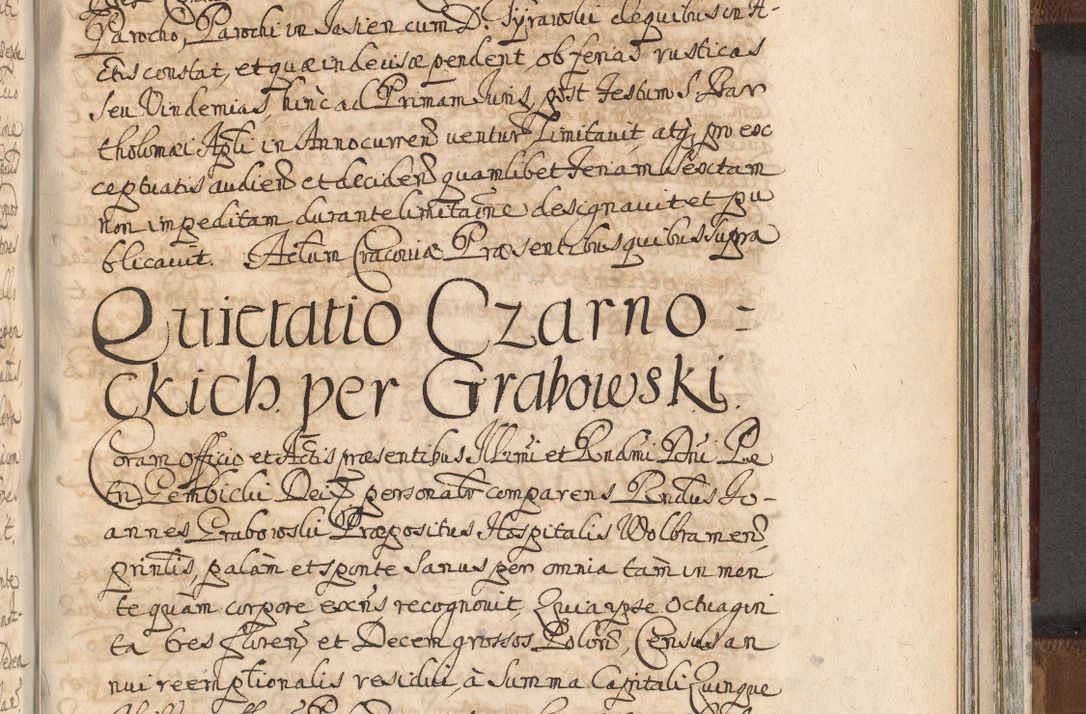 Parocho, Parochi in Jasien cum D. Syrawski de quibus in A-
ctis constat, et quæ inde visæ pendent, ob ferias rusticas
seu Vindemias, hinc ad Primam Juris, post Festum S. Bar
tholomæi Apli in Anno curren ventur Limitavit atq pro exc
ceptuatis audien et deciden quamlibet Feriam Sextam
non impeditam durante limitaõne designavit et pu
blicavit. Actum Cracoviæ Præsentibus quibus supra
Quietatio Czarno =
ckich per Grabowski.
Coram officio et Actis præsentibus Illrmi et Rndmi Dñi Pe
tri Gembicki Dei G personalr comparens Rndus Jo-
annes Grabowski Præpositus Hospitalis Wolbramen,
prinlis, palam et sponte sanus per omnia tam in men
te quàm corpore exns recognovit, Quia ipse Octuagin
ta tres floren, et Decem grossos Polon, Census an
nui reemptionalis residui, à summa Capitali Quinque